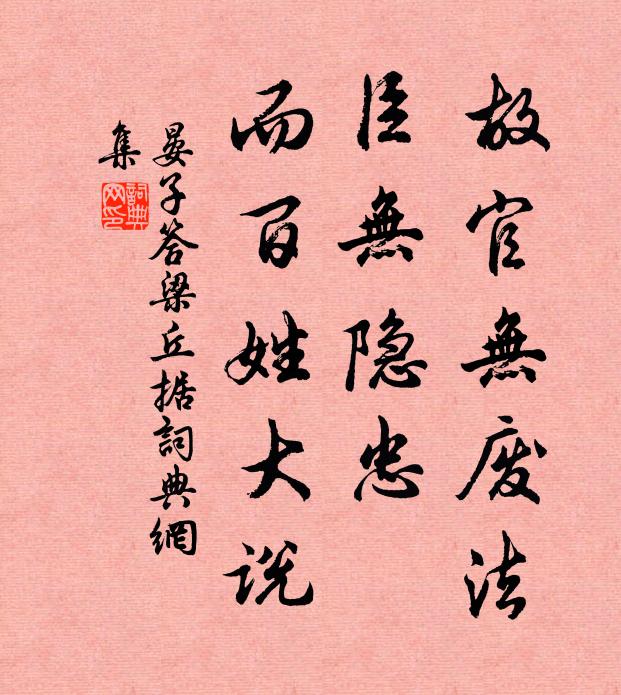 故官無废法
臣無隐忠
而百姓大说
晏子答梁丘据詞典網
集
詞典
网印